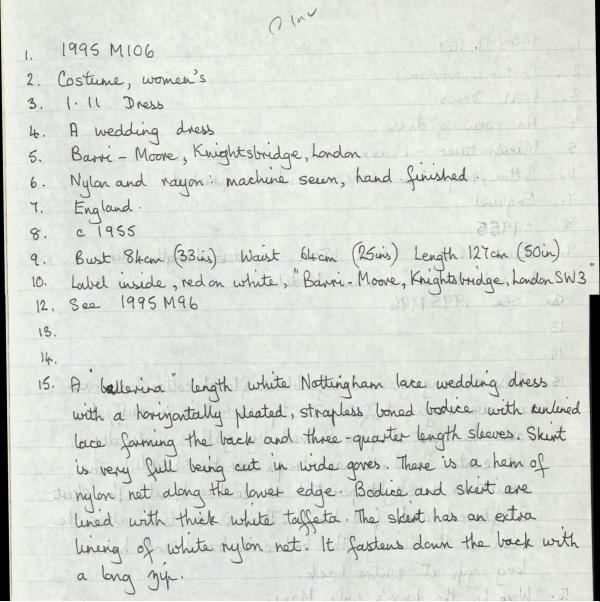 Inv
1. 1995 M106
2. Costume, women's
3. 1.11 Dress
4. A wedding dress
5. Barri-Moore, Knightsbridge, London
6. Nylon and rayon: machine sewn, hand finished.
7. England.
8. c 1955
9. Bust 84cm (33ins) Waist 64cm (25ins) Length 127cm (50in)
10. Label inside, red on white, "Barri-Moore, Knightsbridge, London SW3"
12. See 1995 M96
13.
14.
15. A "ballerina" length white Nottingham lace wedding dress
with a horizontally pleated, strapless boned bodice with unlined
lace forming the back and three-quarter length sleeves. Skirt
is very full being cut in wide gores. There is a hem of
nylon net along the lower edge. Bodice and skirt are
lined with thick white taffeta. The skirt has an extra
lining of white nylon net. It fastens down the back with
a long zip.